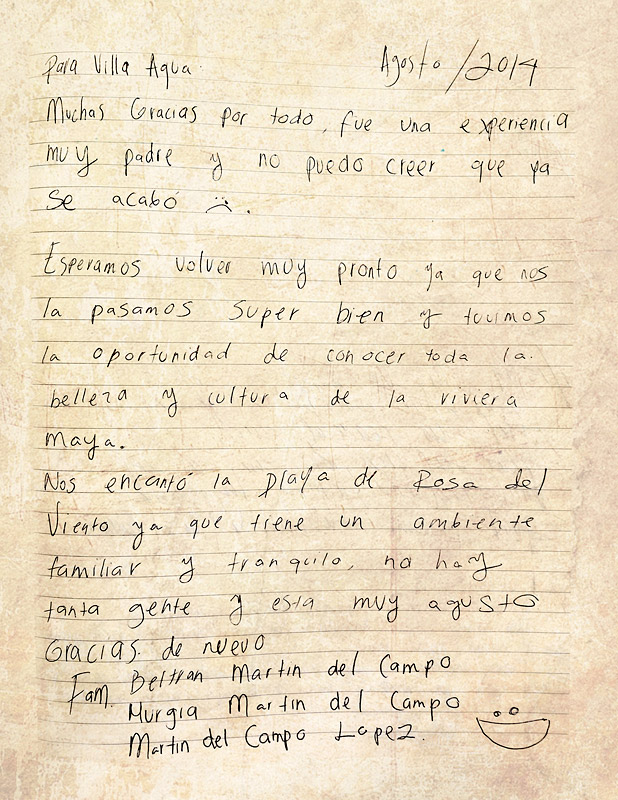 Para Villa Aqua. Agosto /2014
Muchas Gracias por todo, fue una experiencia
muy padre y no puedo creer que ya
se acabó :( .
Esperamos volver muy pronto ya que nos
la pasamos super bien y tuvimos
la oportunidad de conocer toda la.
belleza y cultura de la riviera
maya.
Nos encantó la playa de Rosa del
Viento ya que tiene un ambiente
familiar y tranquilo, no hay
tanta gente y esta muy agusto
Gracias de nuevo
Fam. Beltran Martin del Campo
Murgia Martin del Campo
Martin del Campo Lopez.